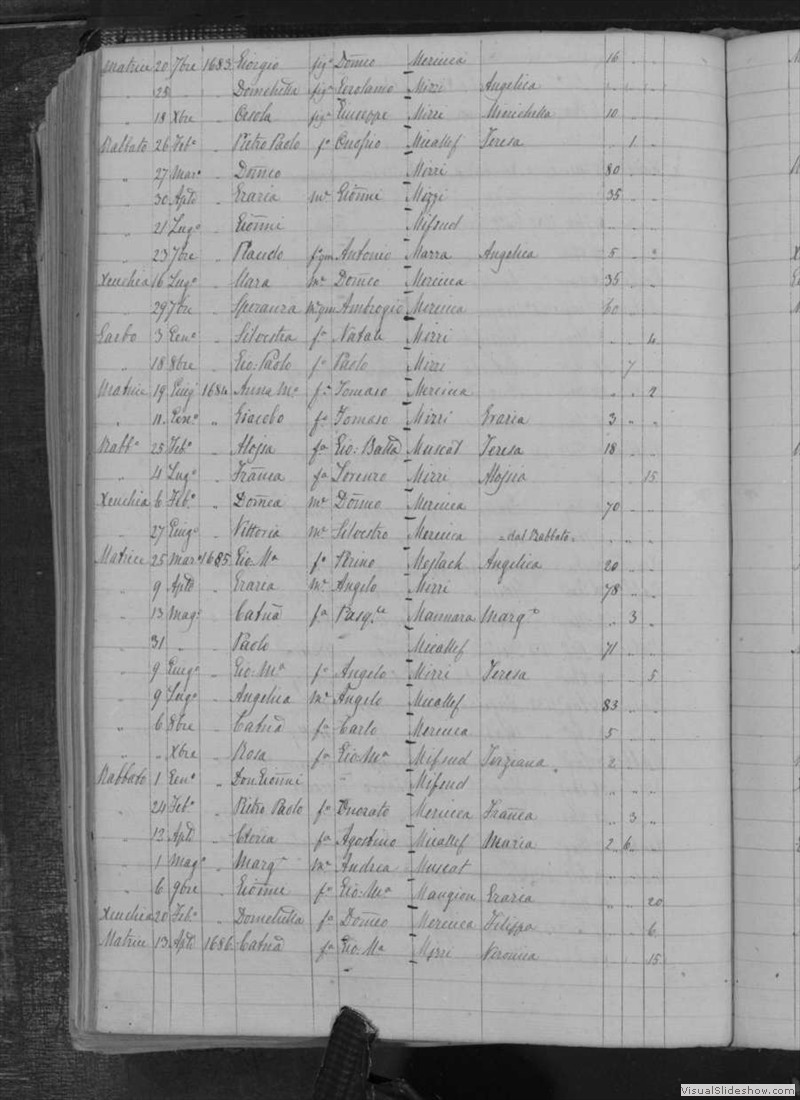 Matrice 20 7bre 1683 Giorgio fig° Dom̃co Mercieca 16 " "
" 25 " Domchetta fig° Gerolamo Mizzi Angelica " " "
" 18 Xbre " Orsola fig° Giuseppe Mizzi Minichella 10 " "
Rabbato 26 Feb° " Pietro Paolo f° Onofrio Micallef Teresa " 1 "
" 27 Mar° " Dom̃co Mizzi 80 " "
" 30 Aple " Grazia m° Gio̅nni Mizzi 35 " "
" 21 Lug° " Gio̅nni Mifsud " " "
" 23 7bre " Placido Antonio Marra Angelica 5 " "
Xeuchia 16 Lug° " Mara m° Dom̃co Mercieca 35 " "
" 29 7bre " Speranza Ambrogio Mercieca 60 " "
Garbo 3 Gen° " Silvestra f° Natale Mizzi " " 4
" 18 8bre " Gio: Paolo f° Paolo Mizzi " 7 "
Matrice 19 Giug° 1684 Anna Mª f° Tomaso Mercieca " " 2
" 11 Gen° " Giacobo f° Tomaso Mizzi Grazia 3 " "
Rabb° 25 Feb° " Aloysia f° Gio: Batta Muscat Teresa 18 " "
" 4 Lug° " Fran̄ca f° Lorenzo Mizzi Aloysia " " 15
Xeuchia 6 Feb° " Dom̃ca m° Dom̃co Mercieca 70 " "
" 27 Giug° " Vittoria m° Silvestro Mercieca = dal Rabbato = " " "
Matrice 25 Mar° 1685 Gio: Mª f° Angelica 20 " "
" 9 Aple " Grazia m° Angelo Mizzi 78 " "
" 13 Mag° " Catña f° Pasq.le Mannara Marg° " 3 "
" 31 " " Paolo Micallef 71 " "
" 9 Giug° " Gio: Mª f° Angelo Mizzi Teresa " " 5
" 9 Lug° " Angelica m° Angelo Micallef 83 " "
" 6 8bre " Catña f° Carlo Mercieca 5 " "
" " Xbre " Rosa f° Gio: Mª Mifsud 2 " "
Rabbato 1 Gen° " Don Gio̅nni Mifsud " " "
" 24 Feb° " Pietro Paolo f° Onorato Mercieca Fran̄ca " 3 "
" 13 Aple " f° Agostino Micallef Maria 2 6 "
" 1 Mag° " Marg° m° Andrea Muscat " " "
" 6 9bre " Gio̅nne f° Gio: Mª Mangion Grazia " " 20
Xeuchia 20 Feb° " Domchetta f° Dom̃co Mercieca Filippa " " 6
Matrice 13 Aple 1686 Catña f° Gio: Mª Mizzi Veronica " " 15
VisualSlideshow.com